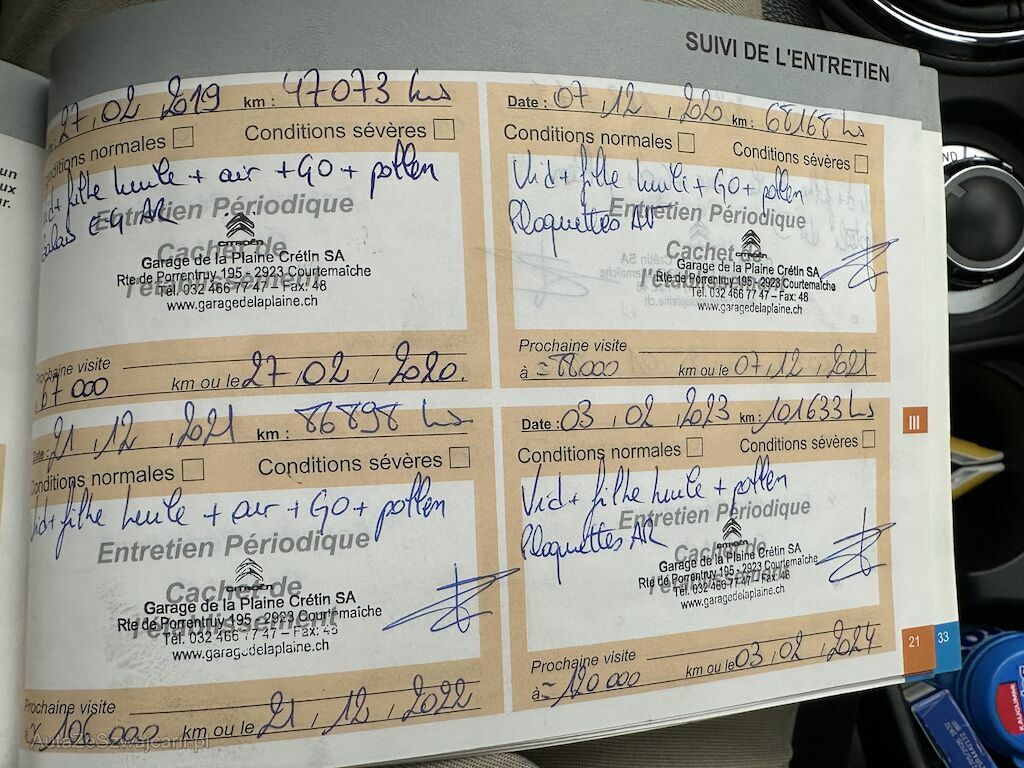 SUIVI DE L'ENTRETIEN
27, 02, 2019 km : 47073 km
Conditions normales Conditions sévères
Vid + filtre huile + air + GO + pollen
Entretien Périodique
Balais EG AR
CITROËN
Cachet de
l'établissement
Garage de la Plaine Crétin SA
Rte de Porrentruy 195 - 2923 Courtemaîche
Tél. 032 466 77 47 – Fax: 48
www.garagedelaplaine.ch
Prochaine visite
à 67 000 km ou le 27, 02, 2020.
Date : 07, 12, 2020 km : 68168 km
Conditions normales Conditions sévères
Vid + filtre huile + GO + pollen
Entretien Périodique
Plaquettes AV
Cachet de
l'établissement
Garage de la Plaine Crétin SA
Rte de Porrentruy 195 - 2923 Courtemaîche
Tél. 032 466 77 47 – Fax: 48
www.garagedelaplaine.ch
Prochaine visite
à = 88000 km ou le 07, 12, 2021
Date : 21, 12, 2021 km : 86898 km
Conditions normales Conditions sévères
Vid + filtre huile + air + GO + pollen
Entretien Périodique
Cachet de
l'établissement
Garage de la Plaine Crétin SA
Rte de Porrentruy 195 - 2923 Courtemaîche
Tél. 032 466 77 47 – Fax: 48
www.garagedelaplaine.ch
Prochaine visite
à 106 000 km ou le 21, 12, 2022
Date : 03, 02, 2023 km : 101633 km
Conditions normales Conditions sévères
Vid + filtre huile + pollen
Entretien Périodique
Plaquettes AR
CITROËN
Cachet de
l'établissement
Garage de la Plaine Crétin SA
Rte de Porrentruy 195 - 2923 Courtemaîche
Tél. 032 466 77 47 – Fax: 48
www.garagedelaplaine.ch
Prochaine visite
à = 120 000 km ou le 03, 02, 2024
III
21 33
AutazeSzwajcarii.pl